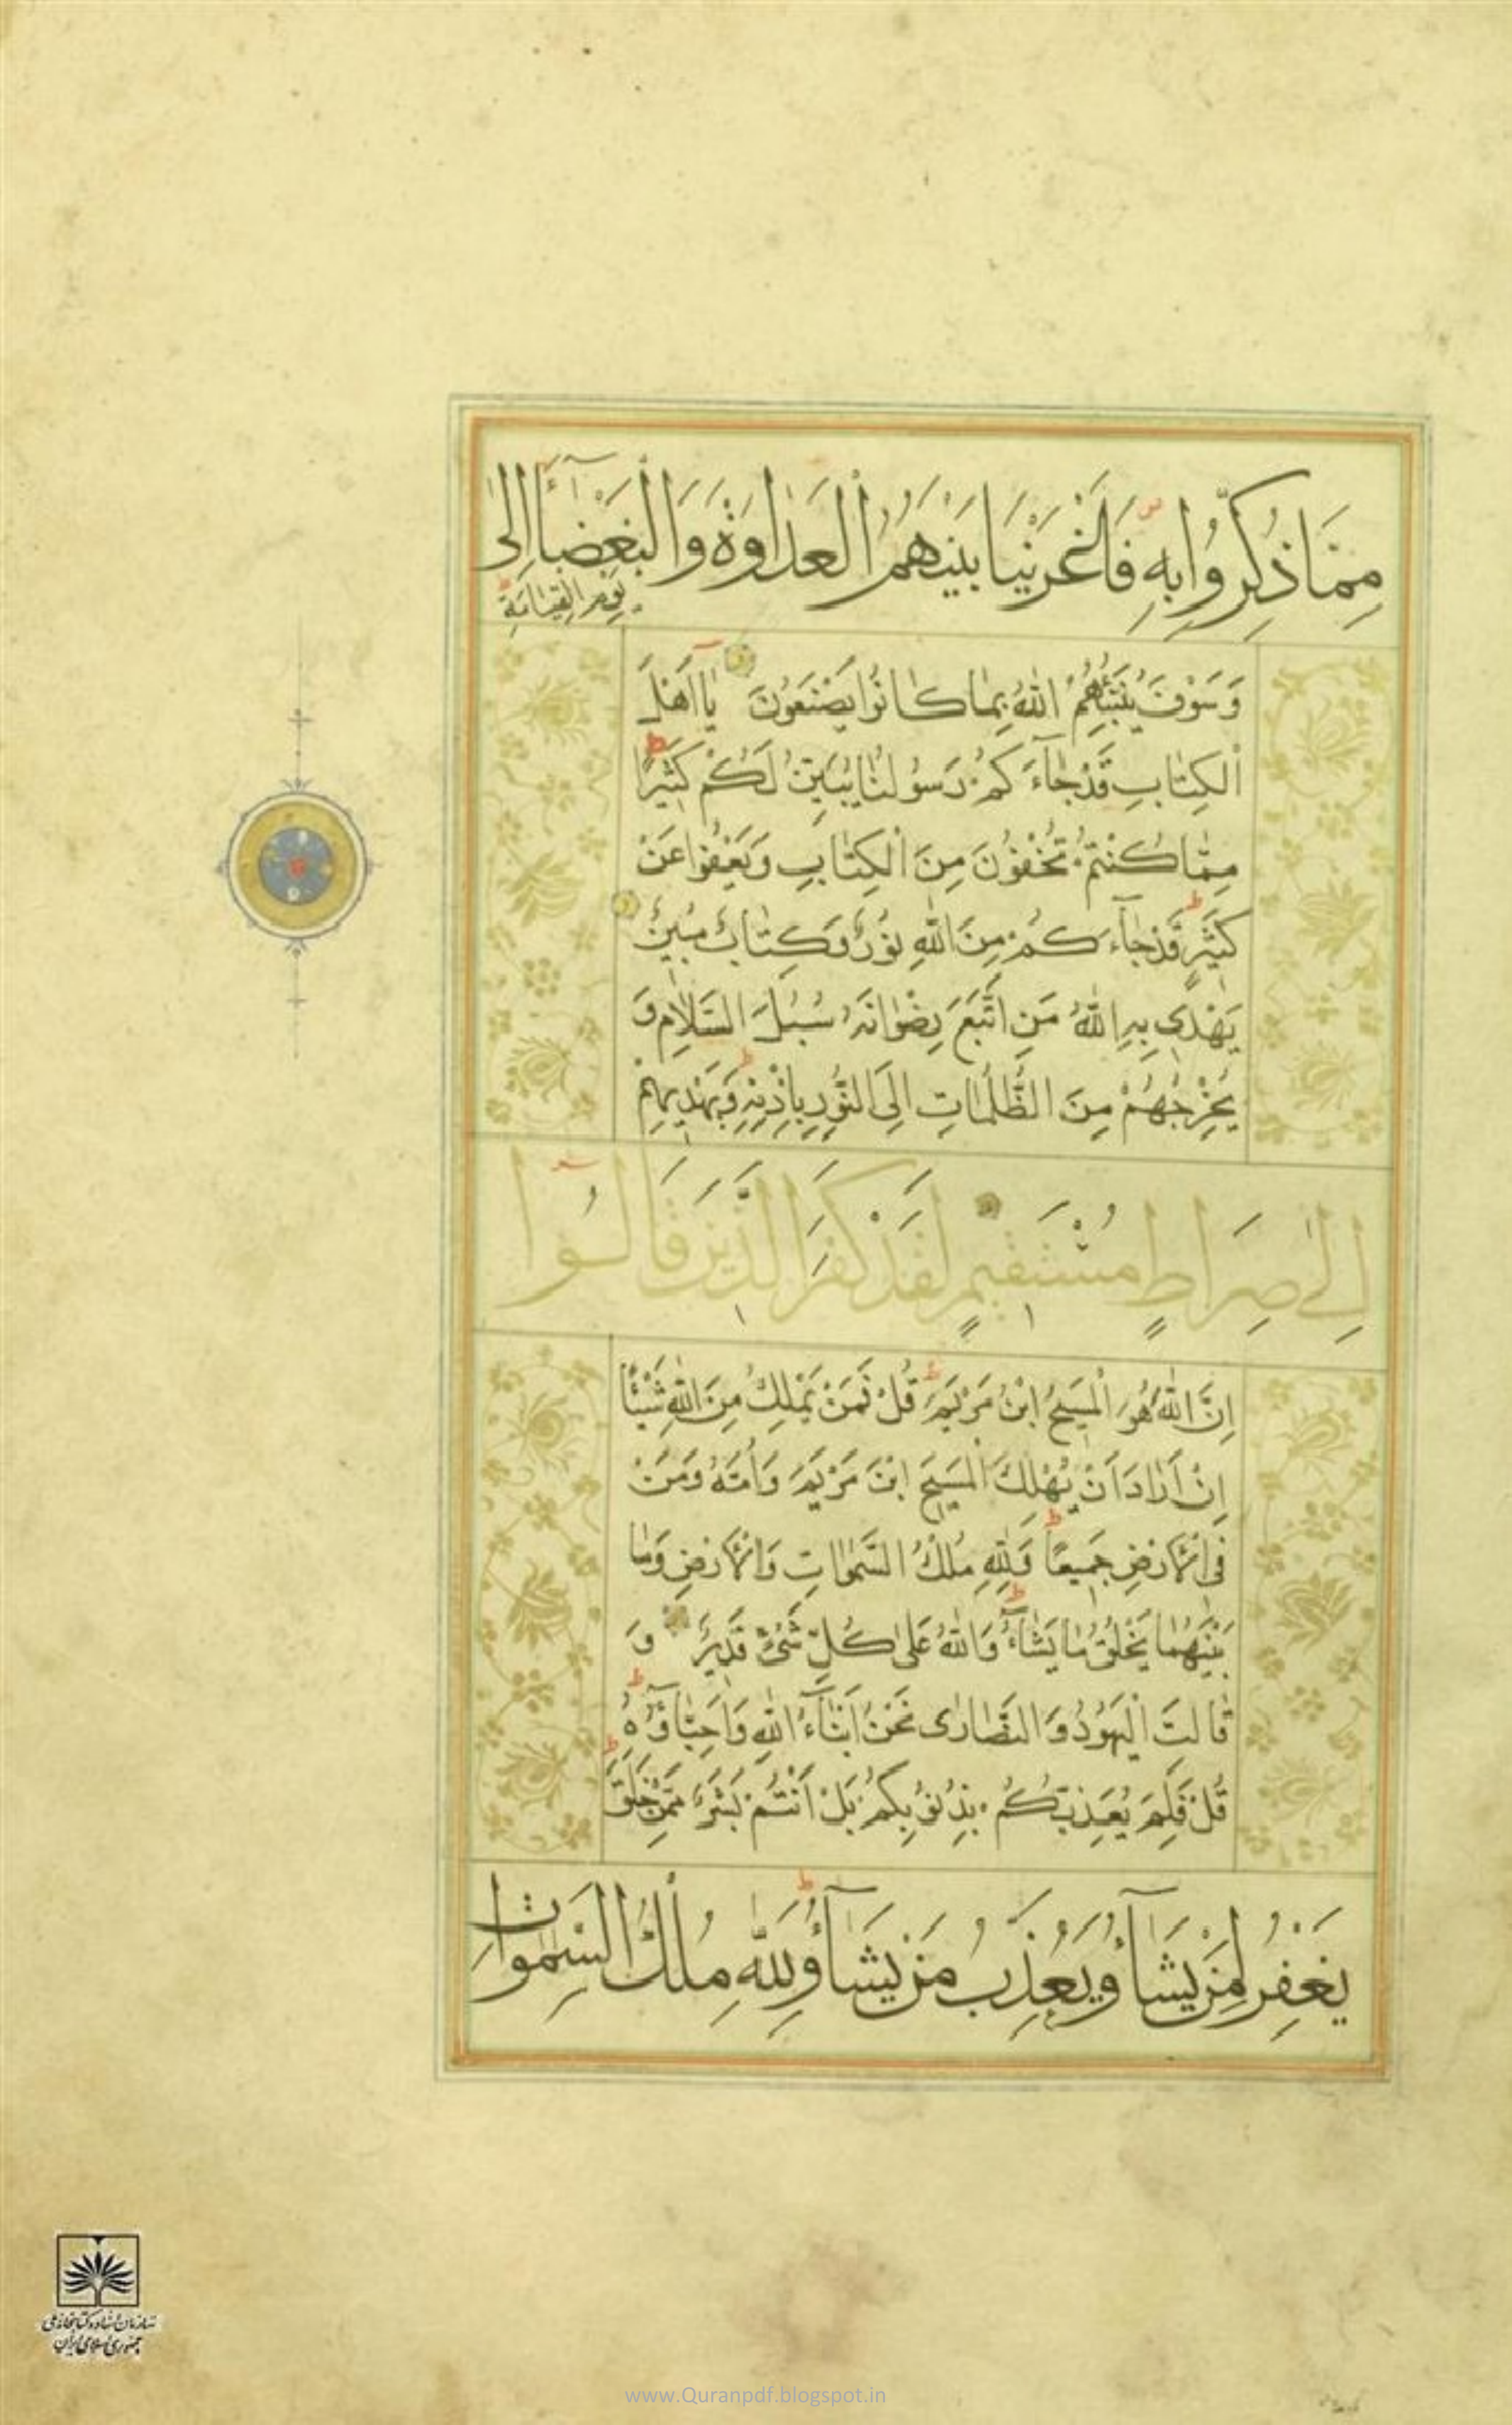 مِمَّا ذُكِّرُوا بِهِ فَأَغْرَيْنَا بَيْنَهُمُ الْعَدَاوَةَ وَالْبَغْضَآءَ اِلىٰ
يَوْمِ الْقِيَامَةِ
وَسَوْفَ يُنَبِّئُهُمُ اللّٰهُ بِمَا كَانُوا يَصْنَعُونَ يَا اَهْلَ
الْكِتَابِ قَدْ جَآءَكُمْ رَسُولُنَا يُبَيِّنُ لَكُمْ كَثِيرًا
مِمَّا كُنْتُمْ تُخْفُونَ مِنَ الْكِتَابِ وَيَعْفُوا عَنْ
كَثِيرٍ قَدْ جَآءَكُمْ مِنَ اللّٰهِ نُورٌ وَكِتَابٌ مُبِينٌ
يَهْدِى بِهِ اللّٰهُ مَنِ اتَّبَعَ رِضْوَانَهُ سُبُلَ السَّلَامِ وَ
يُخْرِجُهُمْ مِنَ الظُّلُمَاتِ اِلَى النُّورِ بِاِذْنِهِ وَيَهْدِيهِمْ
اِلىٰ صِرَاطٍ مُسْتَقِيمٍ لَقَدْ كَفَرَ الَّذِينَ قَالُوا
اِنَّ اللّٰهَ هُوَ الْمَسِيحُ ابْنُ مَرْيَمَ قُلْ فَمَنْ يَمْلِكُ مِنَ اللّٰهِ شَيْئًا
اِنْ اَرَادَ اَنْ يُهْلِكَ الْمَسِيحَ ابْنَ مَرْيَمَ وَاُمَّهُ وَمَنْ
فِى الْاَرْضِ جَمِيعًا وَلِلّٰهِ مُلْكُ السَّمٰوَاتِ وَالْاَرْضِ وَمَا
بَيْنَهُمَا يَخْلُقُ مَا يَشَآءُ وَاللّٰهُ عَلىٰ كُلِّ شَىْءٍ قَدِيرٌ وَ
قَالَتِ الْيَهُودُ وَالنَّصَارىٰ نَحْنُ اَبْنَآءُ اللّٰهِ وَاَحِبَّآؤُهُ
قُلْ فَلِمَ يُعَذِّبُكُمْ بِذُنُوبِكُمْ بَلْ اَنْتُمْ بَشَرٌ مِمَّنْ خَلَقَ
يَغْفِرُ لِمَنْ يَشَآءُ وَيُعَذِّبُ مَنْ يَشَآءُ وَلِلّٰهِ مُلْكُ السَّمٰوَاتِ
سازمان اسناد و کتابخانه ملی
جمهوری اسلامی ایران
www.Quranpdf.blogspot.in